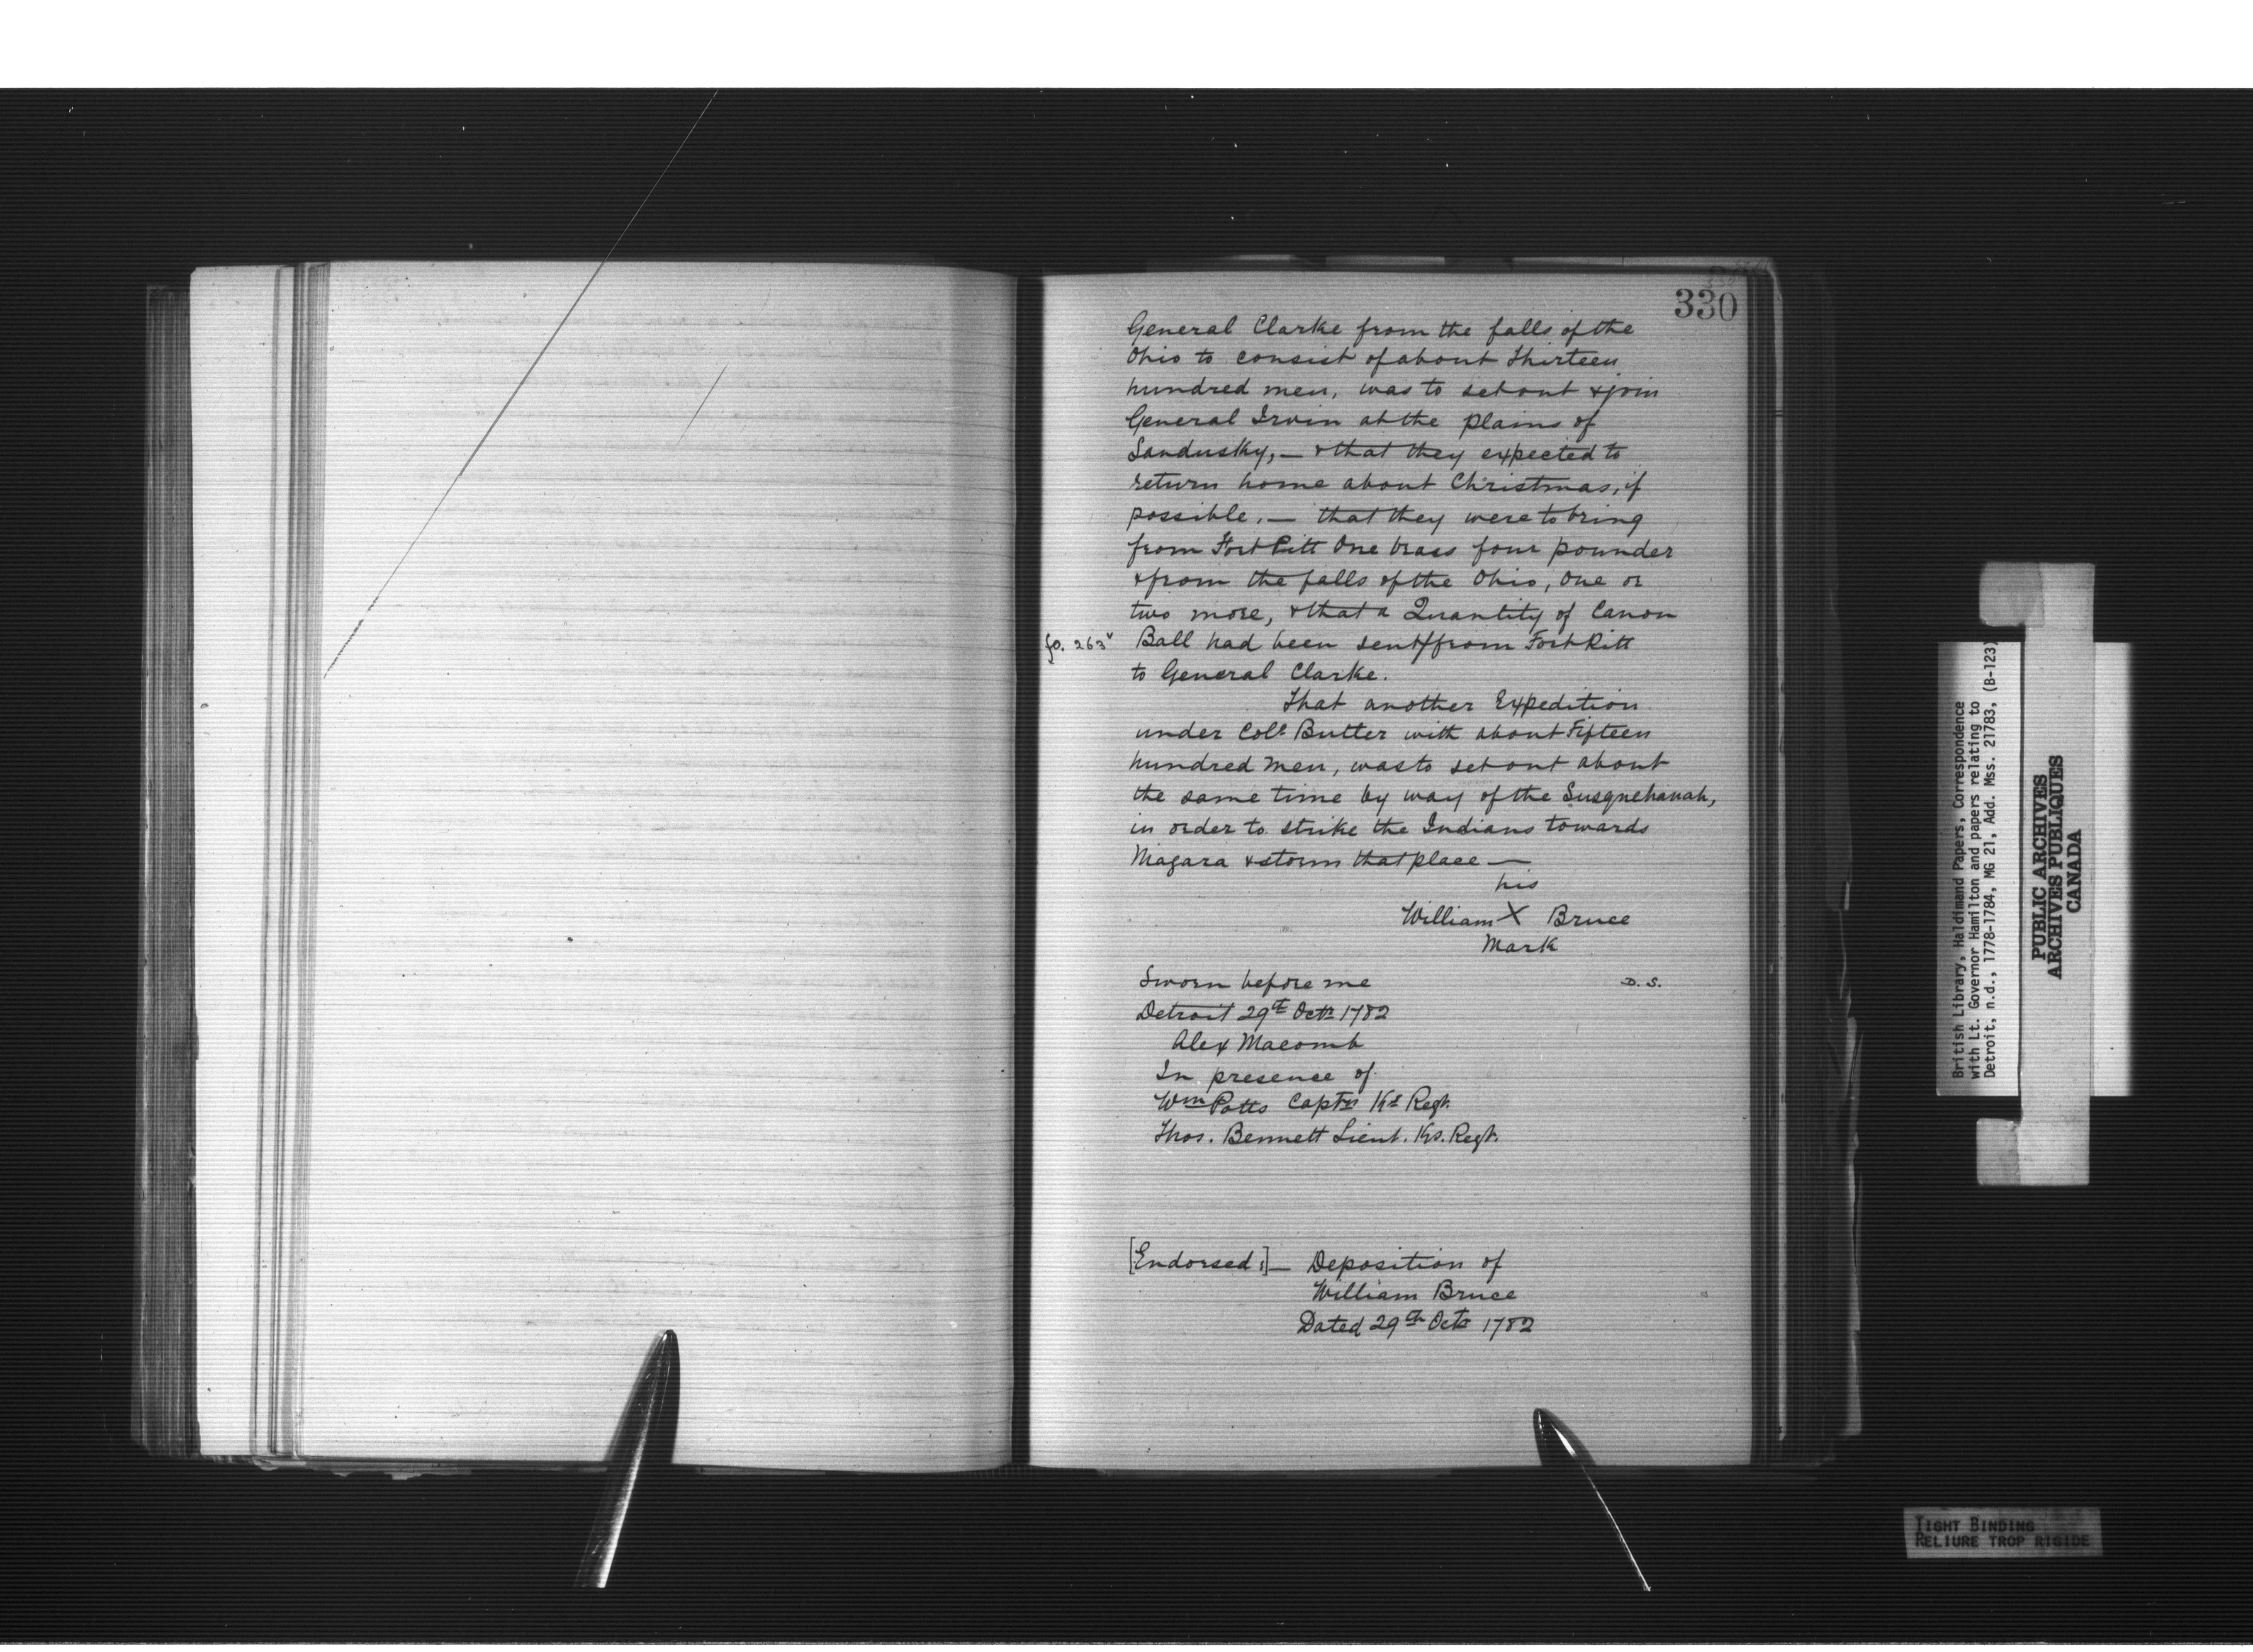 330
General Clarke from the falls of the
Ohio to consist of about Thirteen
hundred men, was to set out & join
General Irvin at the plains of
Sandusky, — & that they expected to
return home about Christmas, if
possible, — that they were to bring
from Fort Pitt One brass four pounder
& from the falls of the Ohio, One or
two more, & that a Quantity of Canon
fo. 263v Ball had been sent/from Fort Pitt
to General Clarke.
That another Expedition
under Coll. Butler with about Fifteen
hundred Men, was to set out about
the same time by way of the Susquehanah,
in order to strike the Indians towards
Niagara & storm that place —
his
William X Bruce
Mark
Sworn before me D. S.
Detroit 29th Octr 1782
Alex Macomb
In presence of
Wm Potts Captn Ks Regt.
Thos. Bennett Lieut. Ks. Regt.
[Endorsed:] — Deposition of
William Bruce
Dated 29th Octr 1782
British Library, Haldimand Papers, Correspondence
with Lt. Governor Hamilton and papers relating to
Detroit, n.d., 1778-1784, MG 21, Add. Mss. 21783, (B-123)
PUBLIC ARCHIVES
ARCHIVES PUBLIQUES
CANADA
TIGHT BINDING
RELIURE TROP RIGIDE